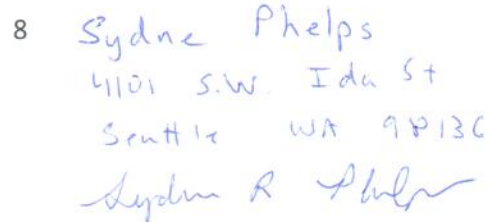 8 Sydne Phelps
4101 S.W. Ida St
Seattle WA 98136
Sydne R Phelps